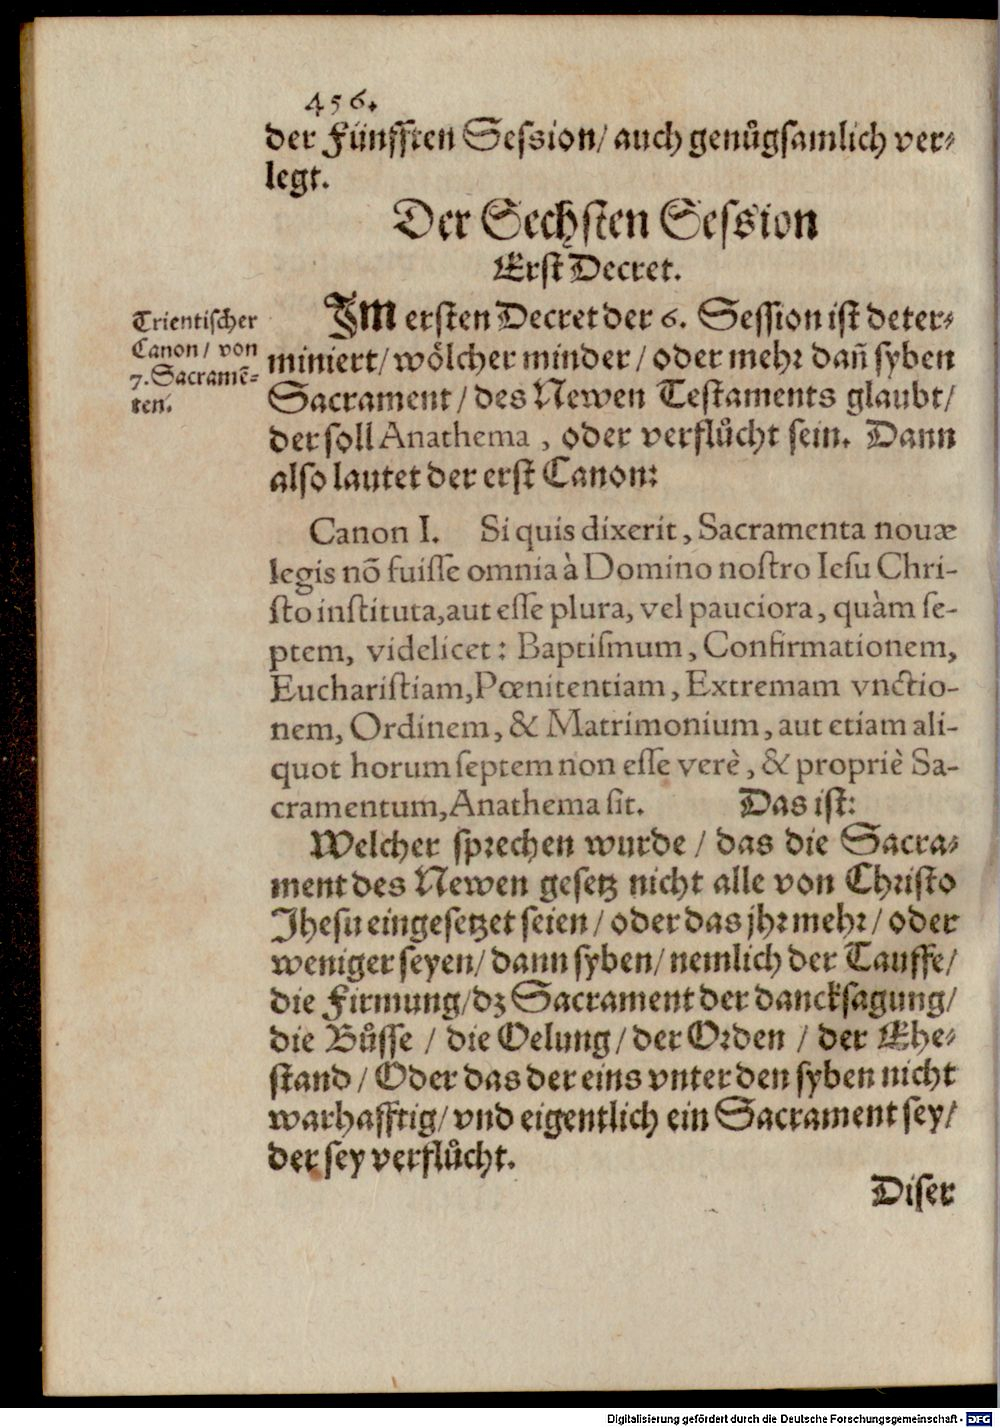 456.
der Fünfften Session/ auch genůgsamlich ver⸗
legt.
Der Sechsten Session
Erst Decret.
Trientischer
Canon/ von
7. Sacramē⸗
ten.
IM ersten Decret der 6. Session ist deter⸗
miniert/ wölcher minder/ oder mehr dañ syben
Sacrament/ des Newen Testaments glaubt/
der soll Anathema, oder verflůcht sein. Dann
also lautet der erst Canon:
Canon I. Si quis dixerit, Sacramenta nouæ
legis nõ fuisse omnia à Domino nostro Iesu Chri-
sto instituta, aut esse plura, vel pauciora, quàm se-
ptem, videlicet: Baptismum, Confirmationem,
Eucharistiam, Pœnitentiam, Extremam vnctio-
nem, Ordinem, & Matrimonium, aut etiam ali-
quot horum septem non esse verè, & propriè Sa-
cramentum, Anathema sit. Das ist:
Welcher sprechen wurde/ das die Sacra⸗
ment des Newen gesetz nicht alle von Christo
Jhesu eingesetzet seien/ oder das jhr mehr/ oder
weniger seyen/ dann syben/ nemlich der Tauffe/
die Firmung/ dz Sacrament der dancksagung/
die Bůsse/ die Oelung/ der Orden/ der Ehe⸗
stand/ Oder das der eins vnter den syben nicht
warhafftig/ vnd eigentlich ein Sacrament sey/
der sey verflůcht.
Diser
Digitalisierung gefördert durch die Deutsche Forschungsgemeinschaft - DFG